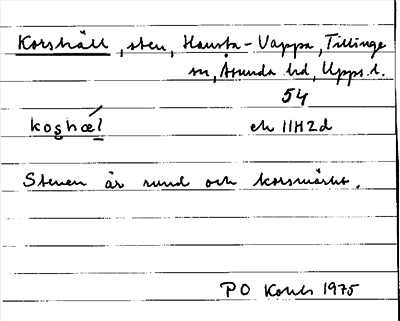 Korshäll, sten, Hausta-Vappa, Tillinge
sn, Åsunda hd, Upps.l.
54
koshæ̀l
ek 11H2d
Stenen är rund och korsmärkt.
P O 1975